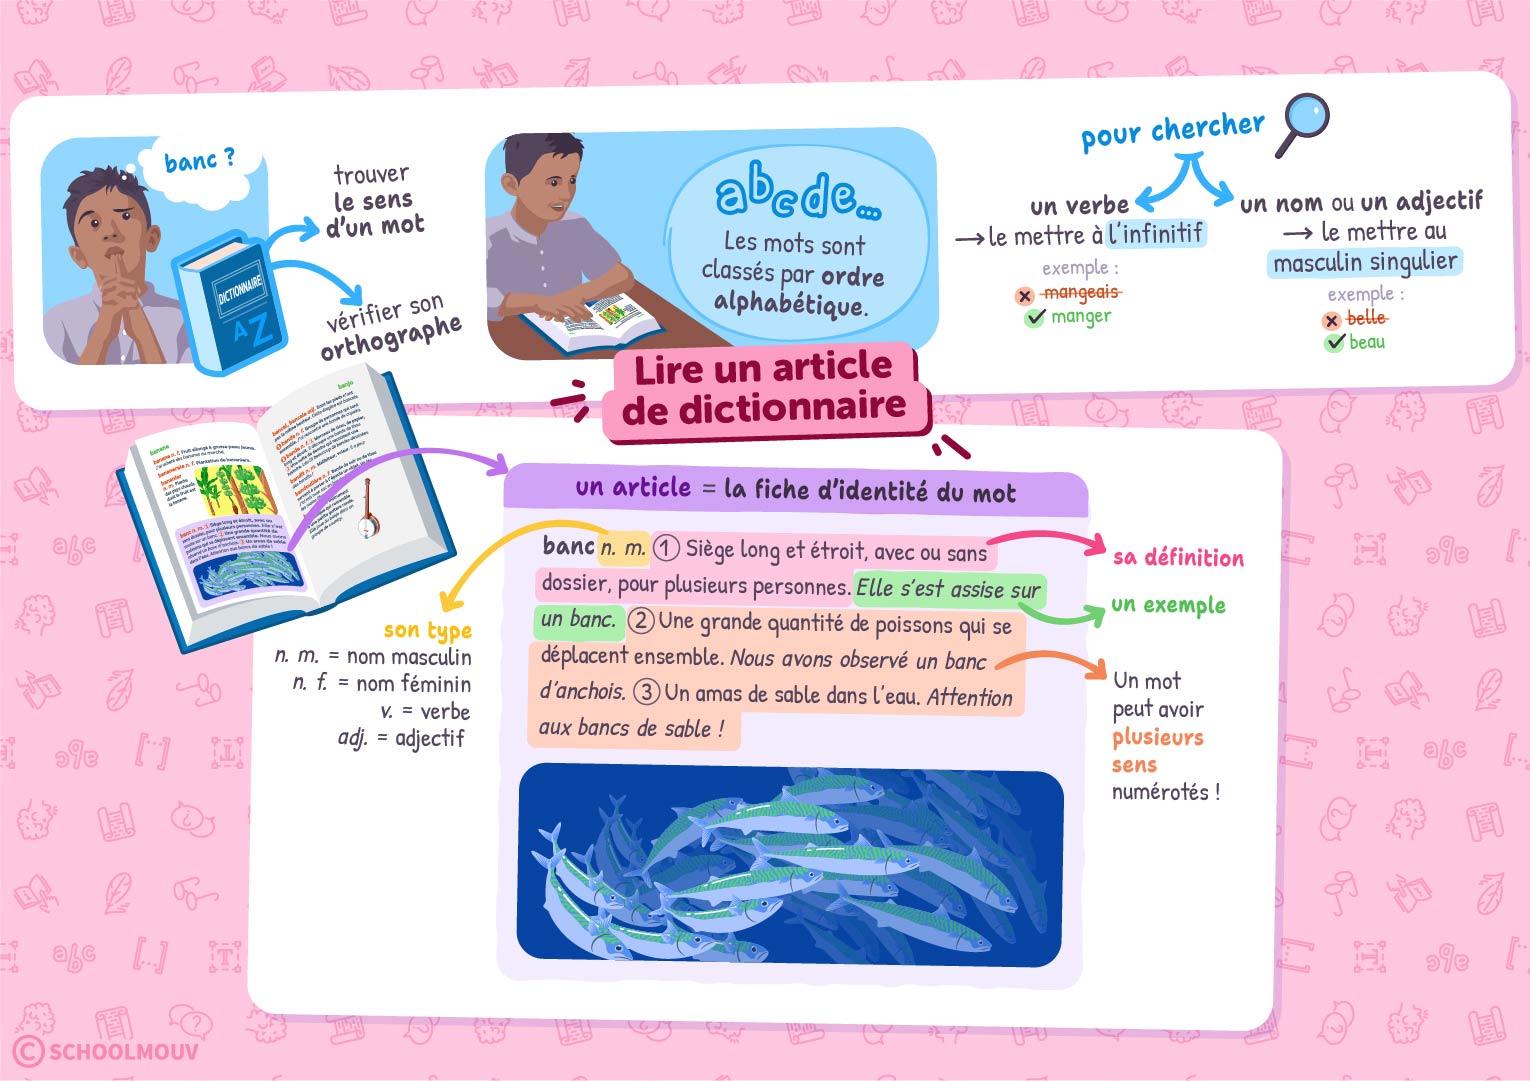 banc ?
DICTIONNAIRE
AZ
trouver
le sens
d'un mot
vérifier son
orthographe
abcde...
Les mots sont
classés par ordre
alphabétique.
pour chercher
un verbe
→ le mettre à l'infinitif
exemple :
mangeais
manger
un nom ou un adjectif
→ le mettre au
masculin singulier
exemple :
belle
beau
Lire un article
de dictionnaire
banane
banjo
un article = la fiche d'identité du mot
banc n. m. ① Siège long et étroit, avec ou sans
dossier, pour plusieurs personnes. Elle s'est assise sur
un banc. ② Une grande quantité de poissons qui se
déplacent ensemble. Nous avons observé un banc
d'anchois. ③ Un amas de sable dans l'eau. Attention
aux bancs de sable !
son type
n. m. = nom masculin
n. f. = nom féminin
v. = verbe
adj. = adjectif
sa définition
un exemple
Un mot
peut avoir
plusieurs
sens
numérotés !
© SCHOOLMOUV